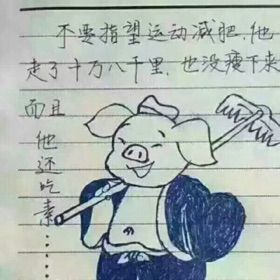 不要指望运动减肥，他
走了十万八千里，也没瘦下来
而且他还吃素……